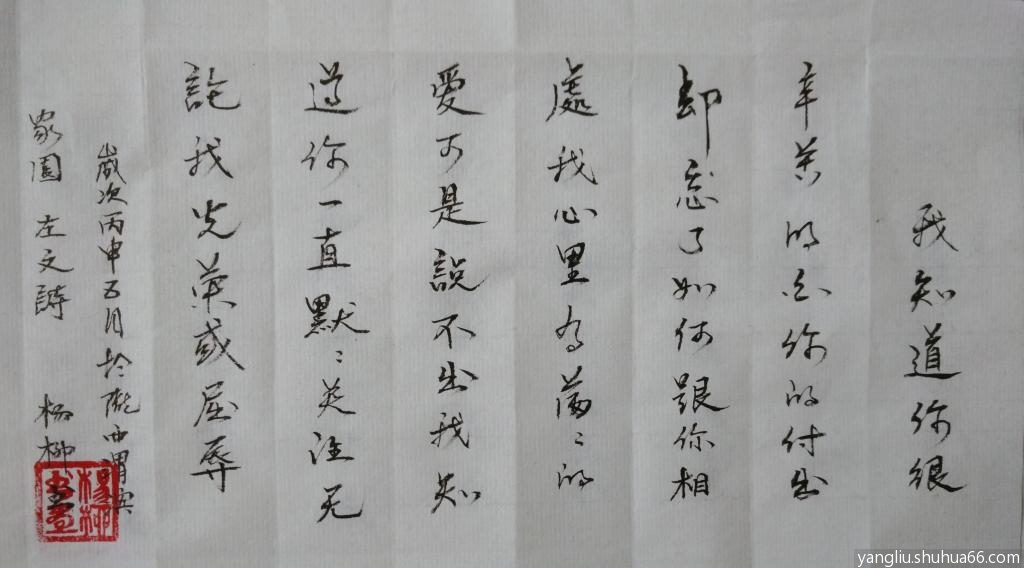 我知道你很
辛苦明白你的付出
却忘了如何跟你相
處我心里有滿〻的
愛可是說不出我知
道你一直默〻关注无
論我光榮或屈辱
歲次丙申五月於隴西渭
家園 左文詩 楊柳
楊柳書畫
yangliu.shuhua66.com